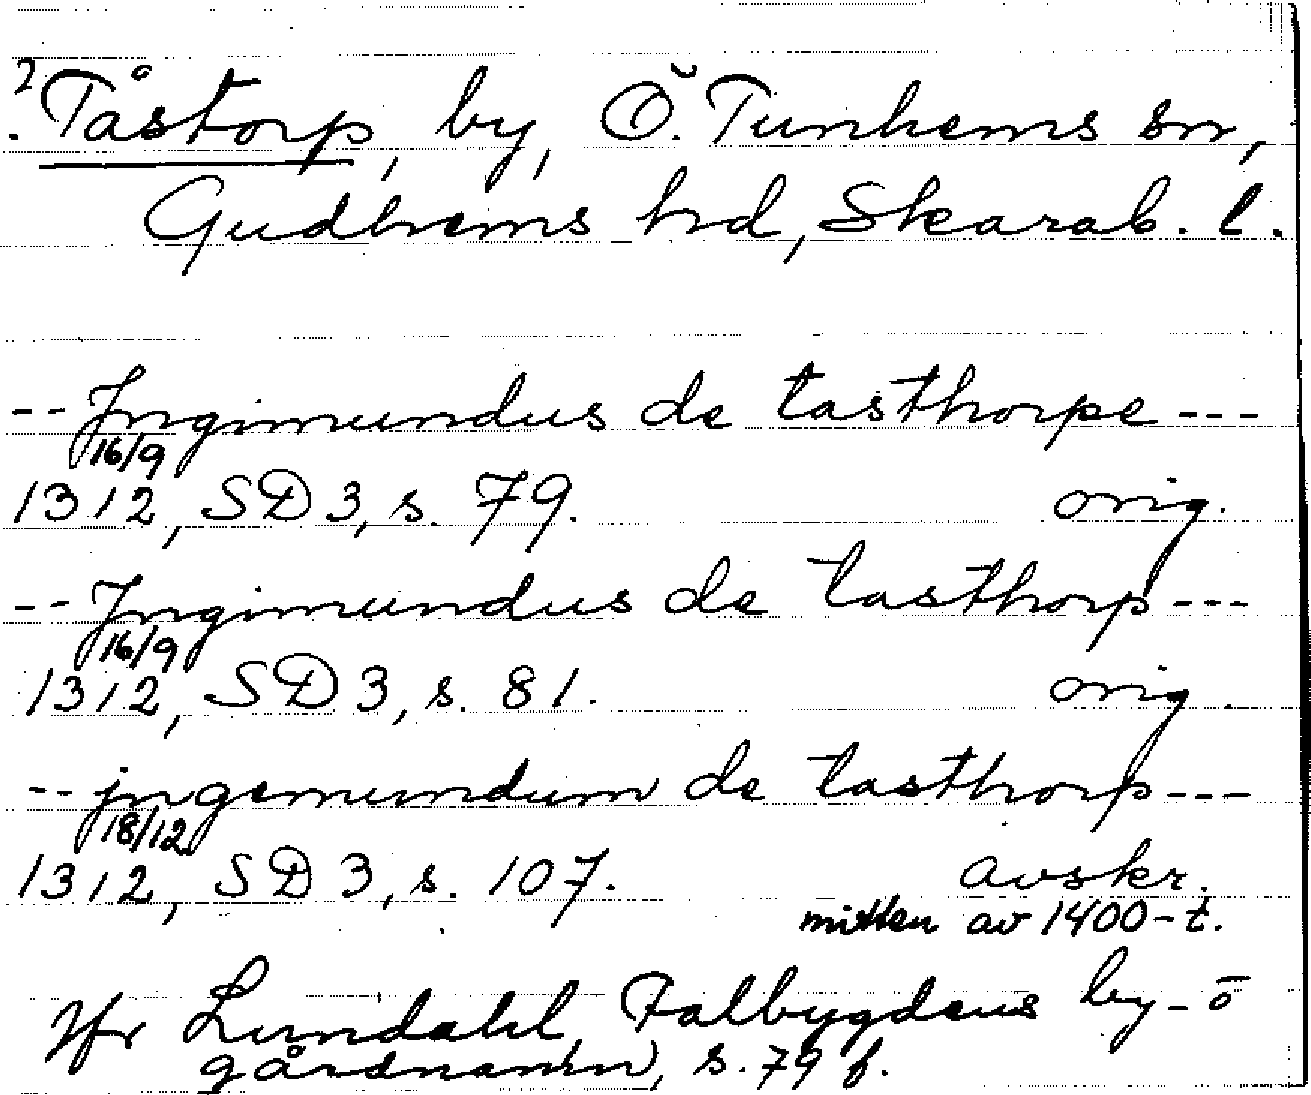 ? Tåstorp, by, Ö. Tunhems sn,
Gudhems hd, Skarab. l.
-- Jngimundus de tasthorpe ---
16/9
1312, SD 3, s. 79. orig.
-- Jngimundus de tasthorp ---
16/9
1312, SD 3, s. 81. orig.
-- jngemundum de tasthorp ---
18/12
1312, SD 3, s. 107. avskr.
mitten av 1400-t.
Jfr Lundahl, Falbygdens by- o
gårdnamn, s. 79 f.